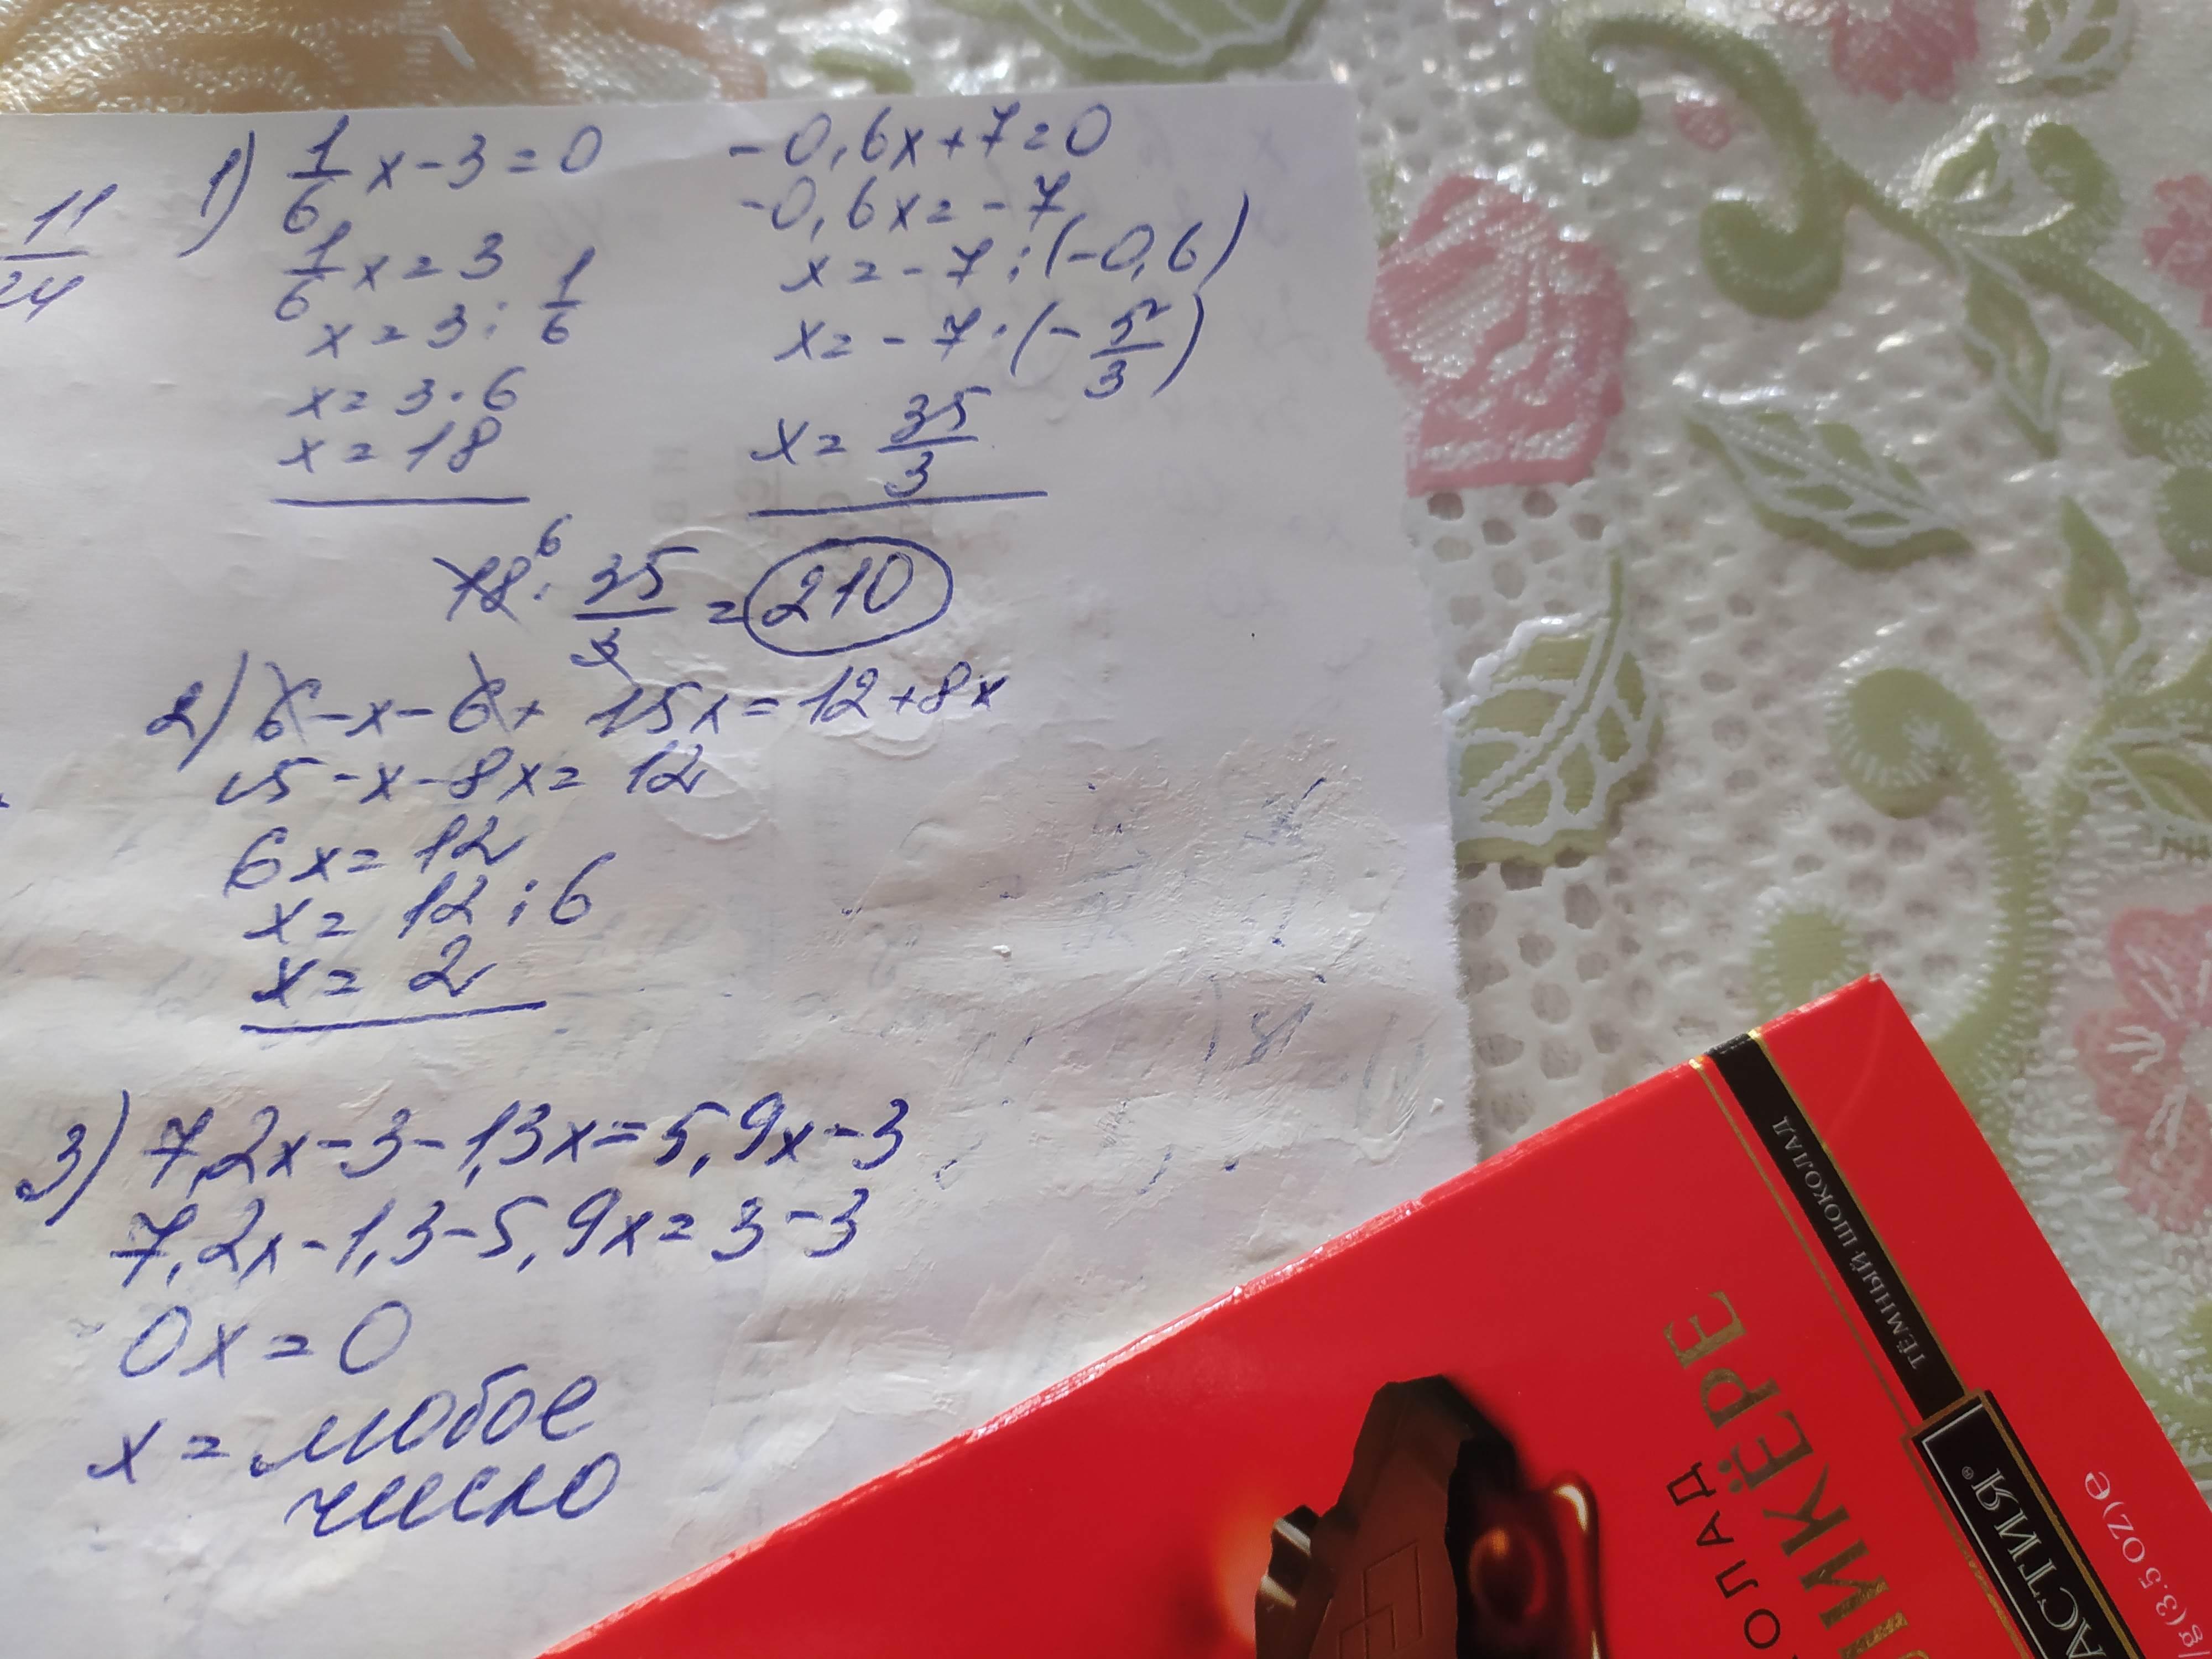 11
24
1) 1/6 x - 3 = 0
1/6 x = 3
x = 3 : 1/6
x = 3 · 6
x = 18
-0,6x + 7 = 0
-0,6x = -7
x = -7 : (-0,6)
x = -7 · (-5/3)
x = 35/3
18 6 · 35/3 = 210
2) 6 - x - 6 + 15x = 12 + 8x
15 - x - 8x = 12
6x = 12
x = 12 : 6
x = 2
3) 7,2x - 3 - 1,3x = 5,9x - 3
7,2x - 1,3 - 5,9x = 3 - 3
0x = 0
x = любое
число
ТЁМНЫЙ ШОКОЛАД
АСТИЯ®
g (3.5 OZ) e
ОЛАД
ЛИКЁРЕ